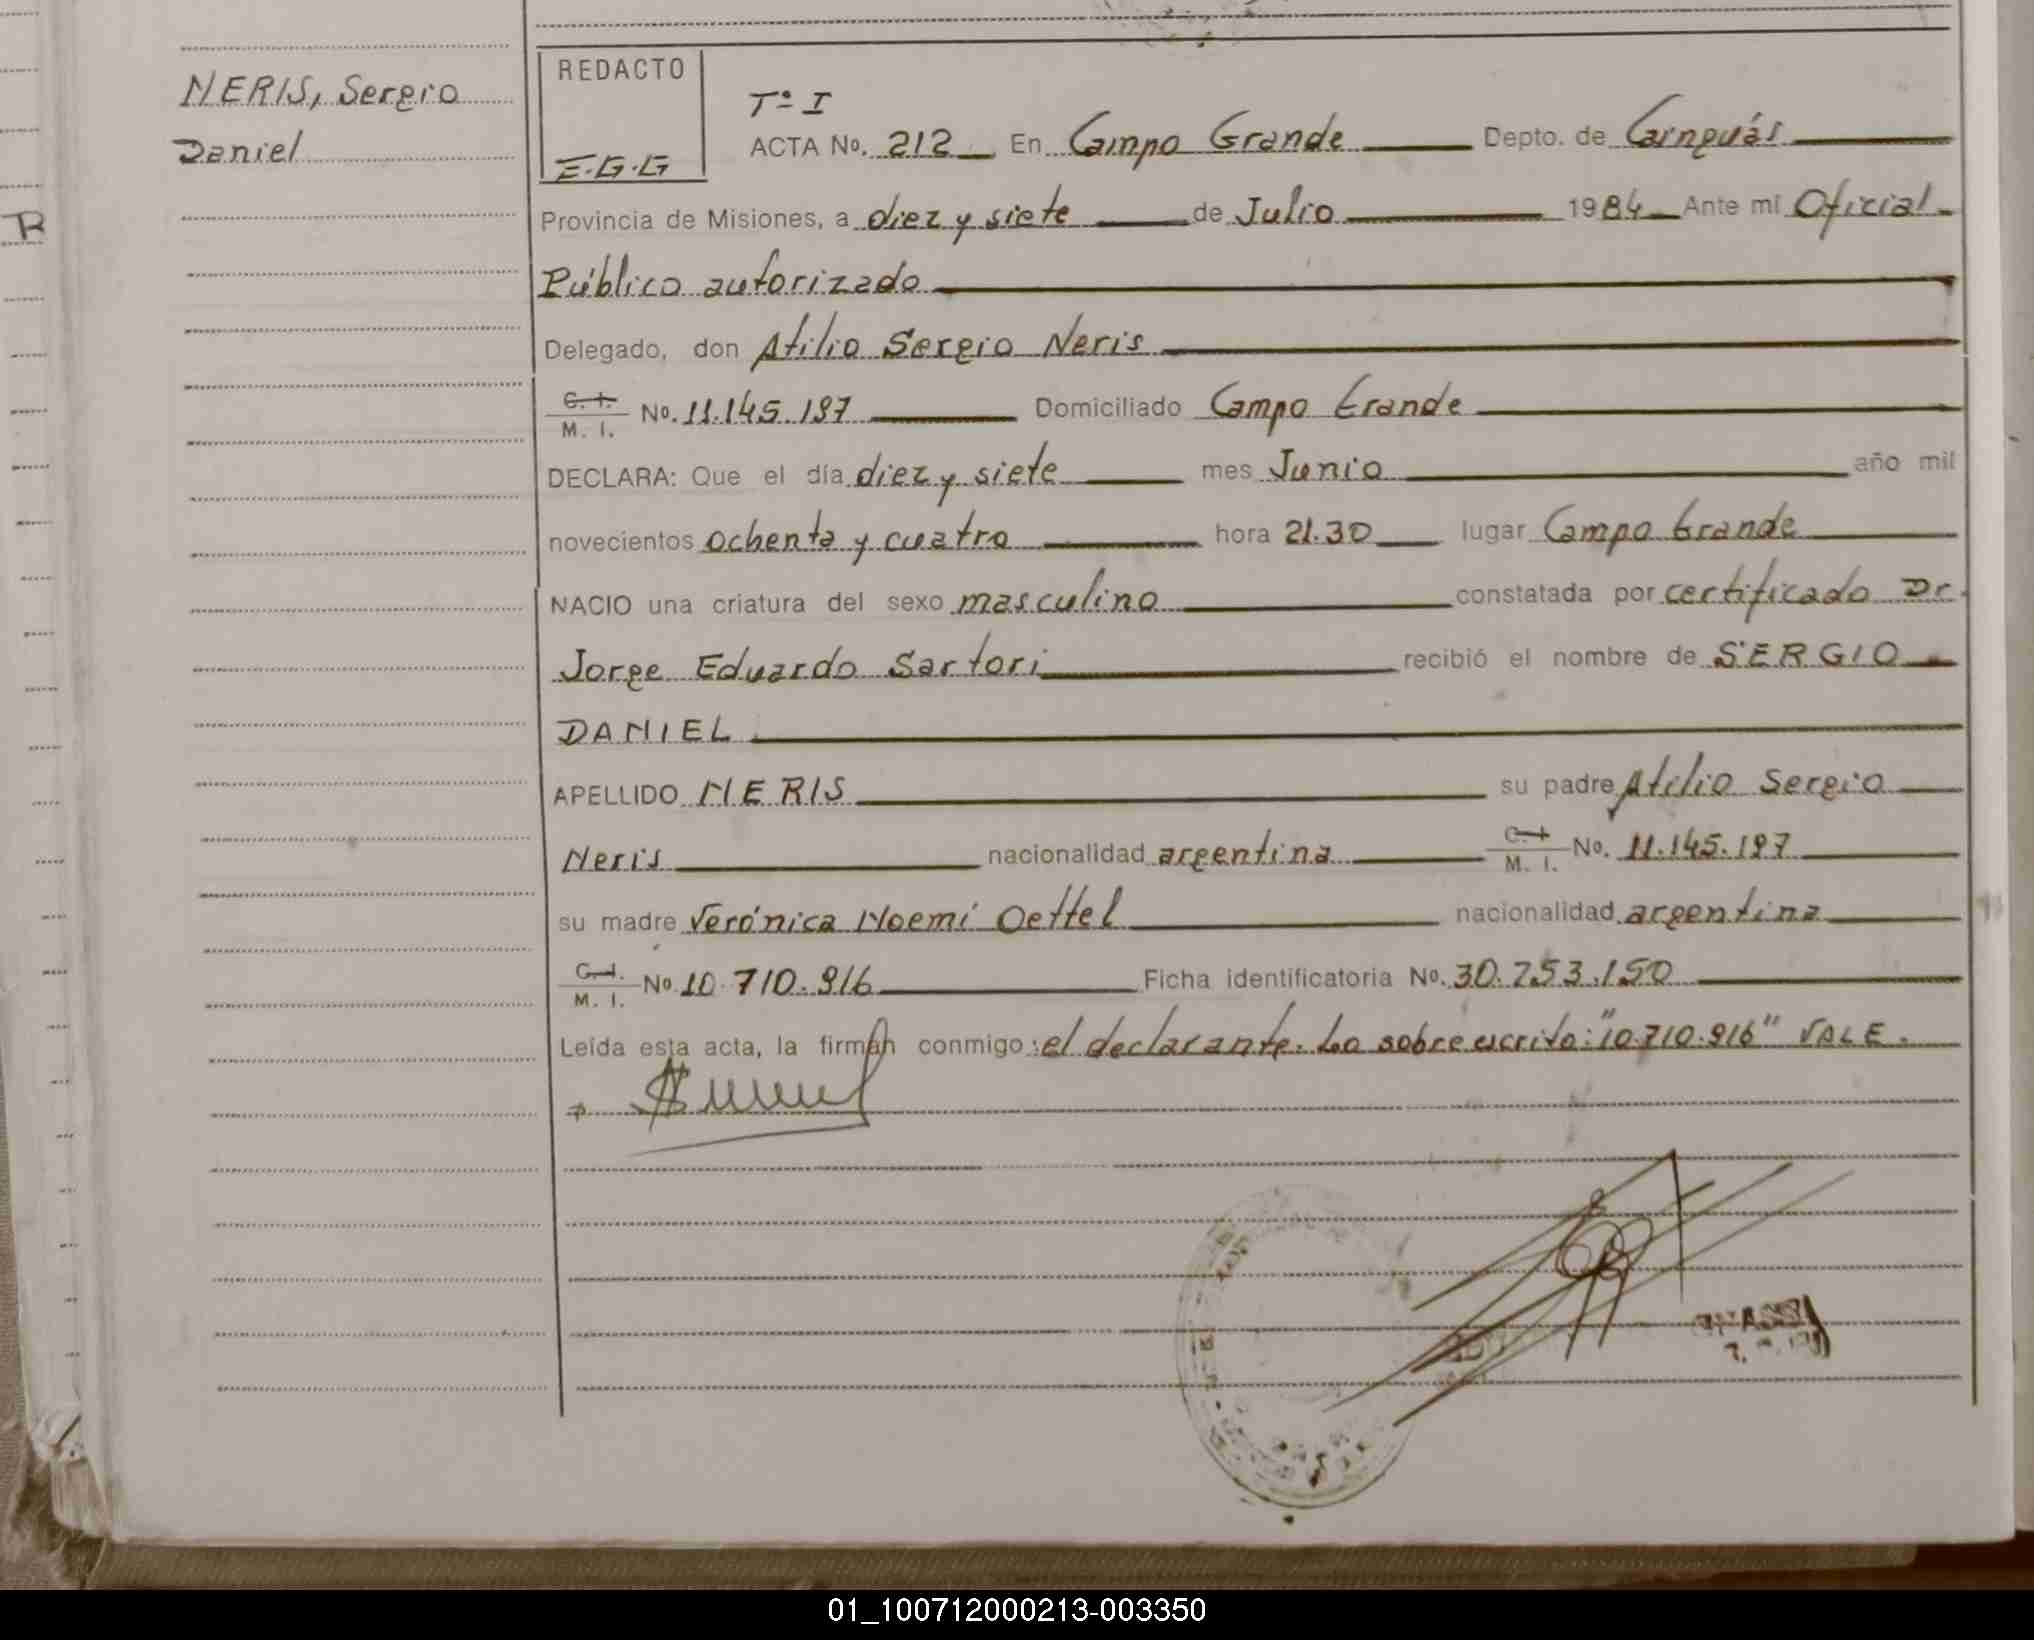 NERIS, Sergio
Daniel
R
REDACTO
E.G.G
Tº I
ACTA No. 212 En Campo Grande Depto. de Cainguás
Provincia de Misiones, a diez y siete de Julio 1984 Ante mi Oficial
Público autorizado
Delegado, don Atilio Sergio Neris
C. I. M. I. No. 11.145.197 Domiciliado Campo Grande
DECLARA: Que el día diez y siete mes Junio año mil
novecientos ochenta y cuatro hora 21.30 lugar Campo Grande
NACIO una criatura del sexo masculino constatada por certificado Dr.
Jorge Eduardo Sartori recibió el nombre de SERGIO
DANIEL
APELLIDO NERIS su padre Atilio Sergio
Neris nacionalidad argentina C. I. M. I. No. 11.145.197
su madre Verónica Noemí Oettel nacionalidad argentina
C. I. M. I. No 10.710.916 Ficha identificatoria No. 30.253.150
Leída esta acta, la firman conmigo: el declarante. Lo sobre escrito: "10.710.916" VALE.
01_100712000213-003350